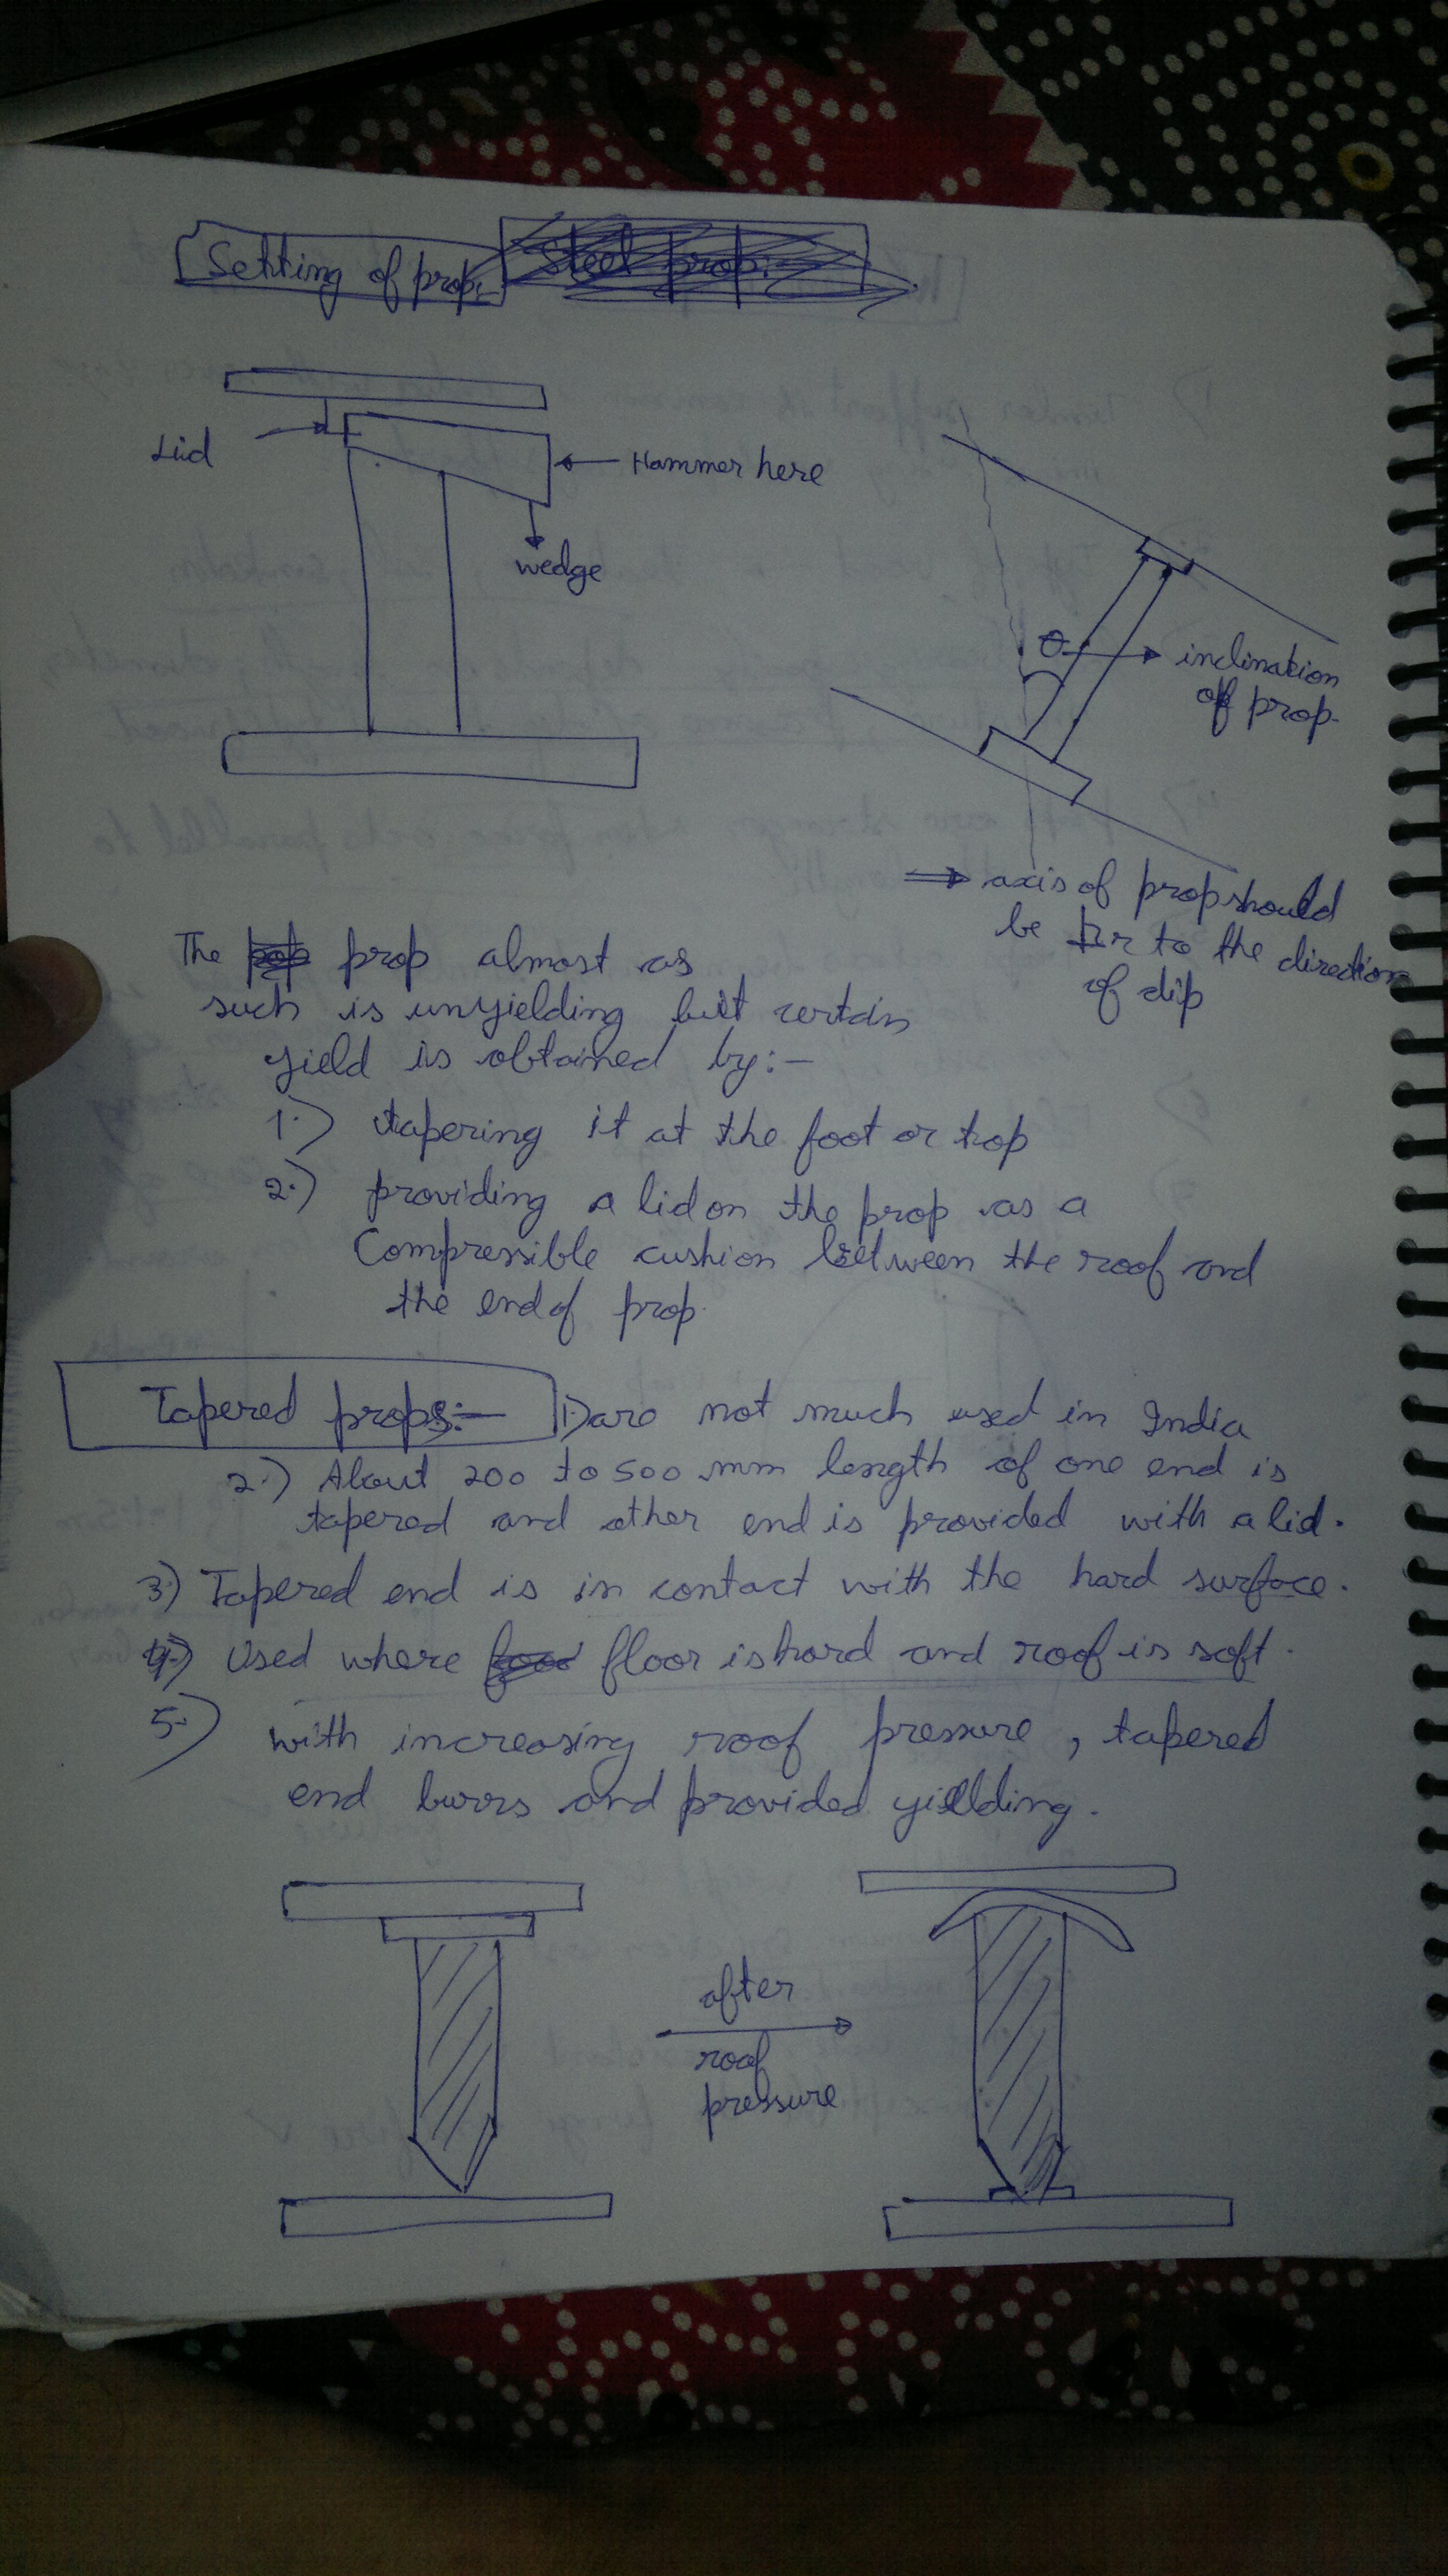 Setting of prop:
Steel prop:
Lid
Hammer here
wedge
θ
inclination
of prop.
⇒ axis of prop should
be ⊥r to the direction
of dip
The prop almost as
such is unyielding but certain
yield is obtained by:-
1.) tapering it at the foot or top
2.) providing a lid on the prop as a
Compressible cushion between the roof and
the end of prop.
Tapered props:- 1) are not much used in India
2.) About 200 to 500 mm length of one end is
tapered and other end is provided with a lid.
3) Tapered end is in contact with the hard surface.
4) Used where floor is hard and roof is soft.
5.) with increasing roof pressure, tapered
end burrs and provided yielding.
after
roof
pressure